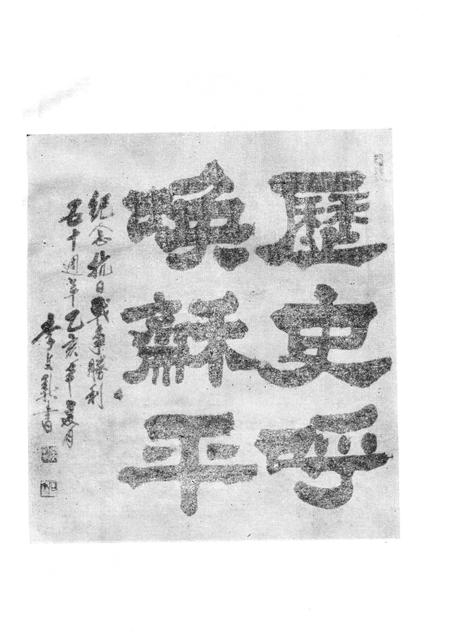 歷史呼
喚龢平
紀念抗日戰爭勝利
五十週年乙亥年夏月
李文書